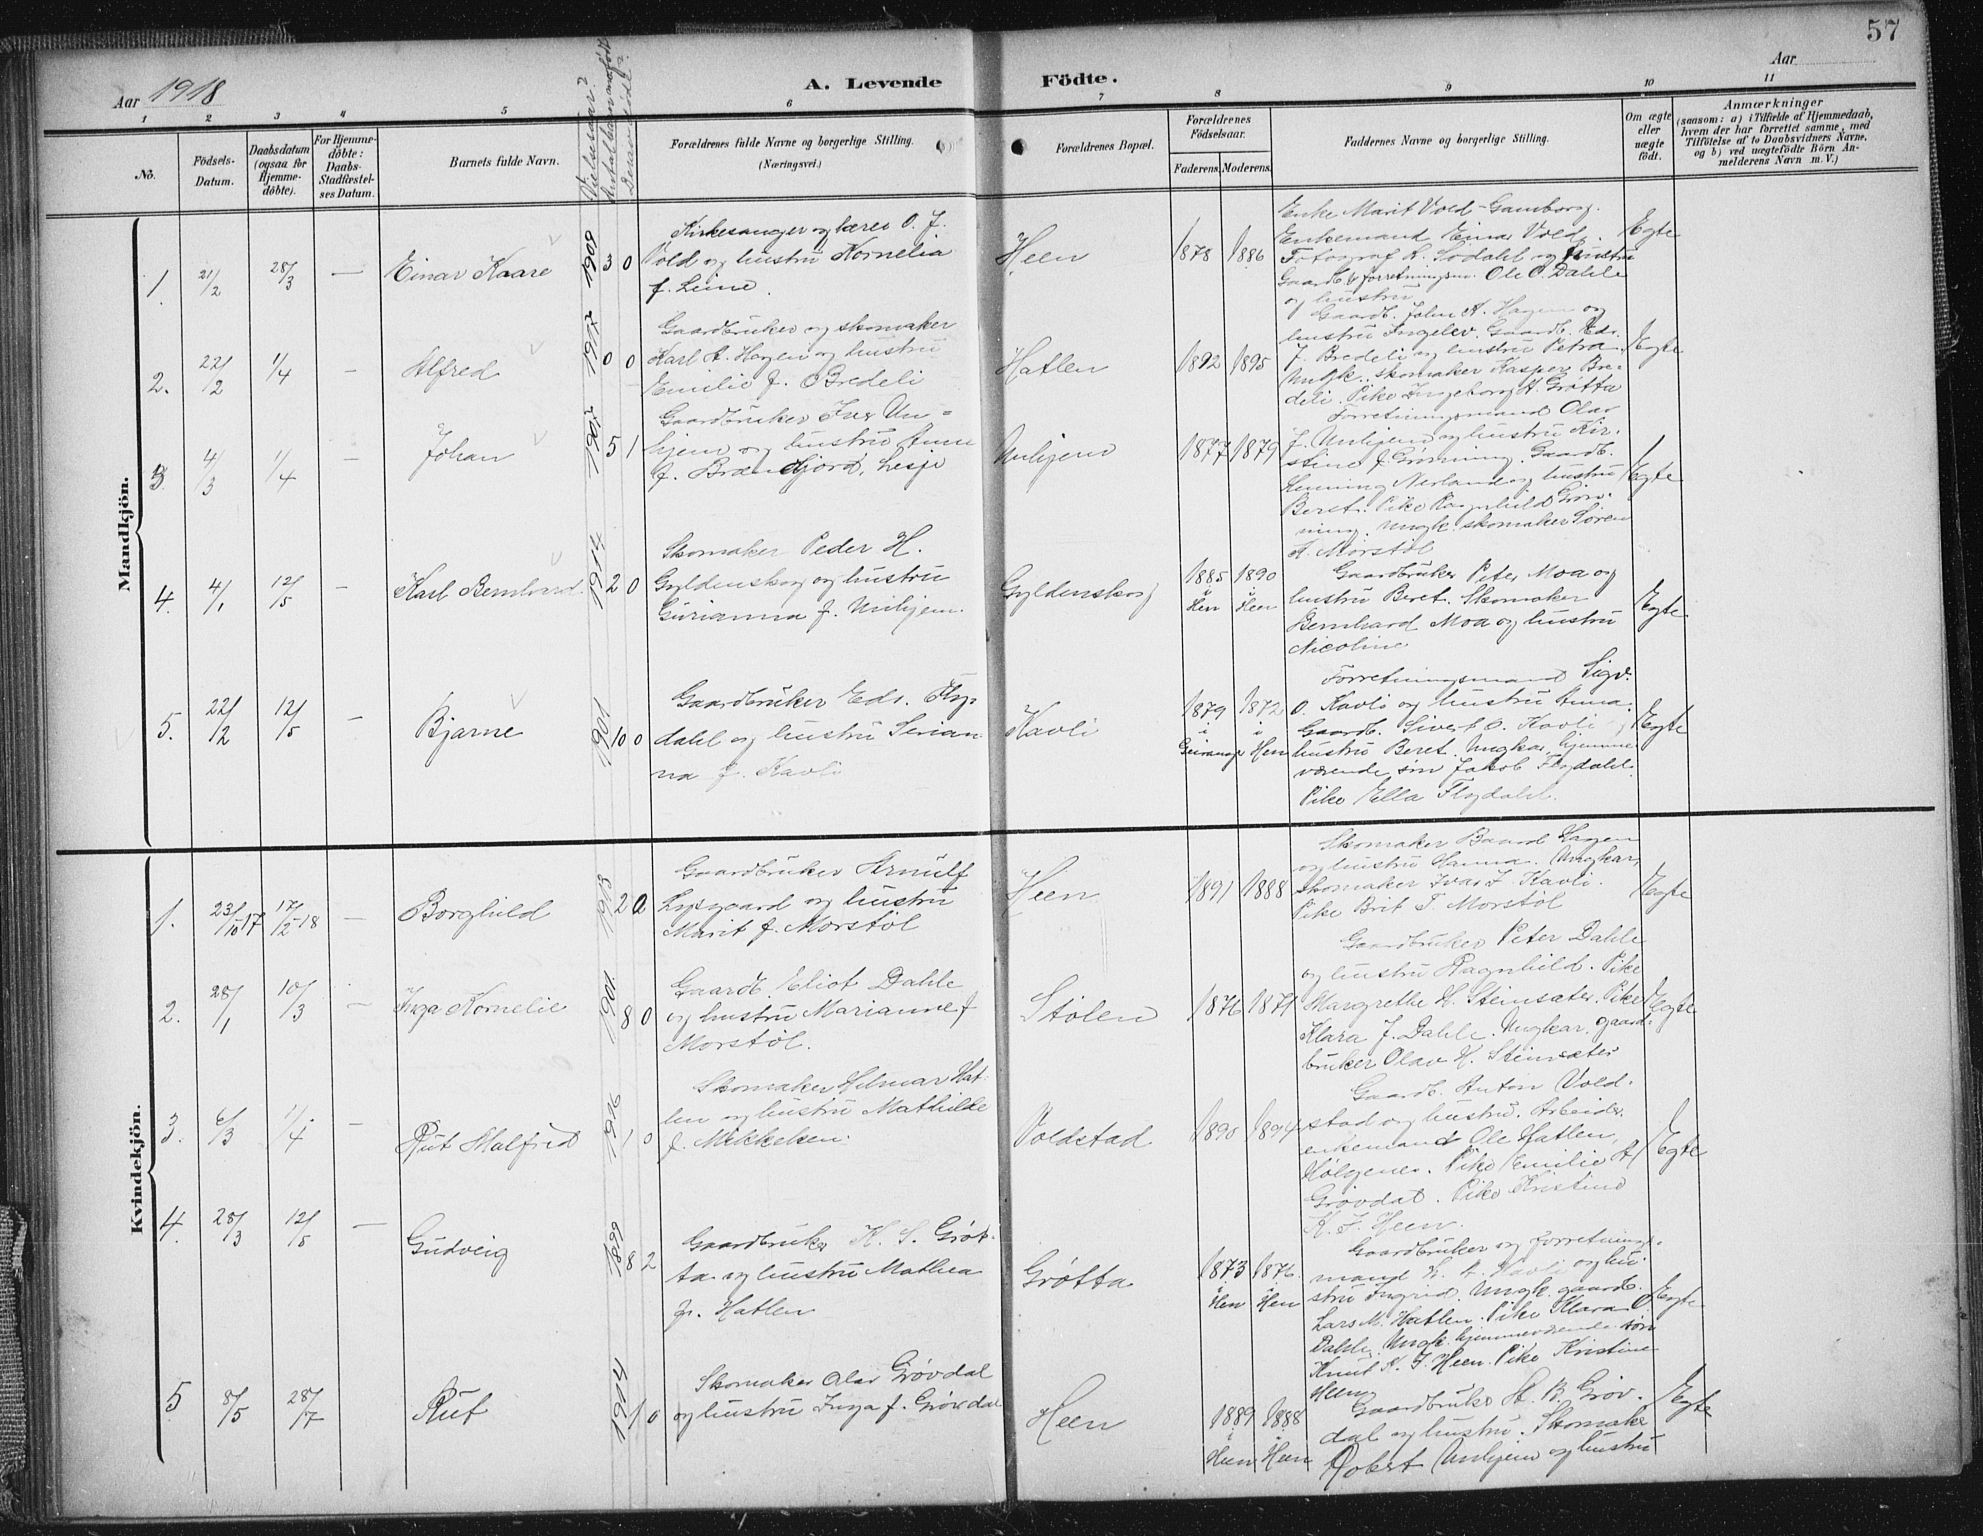 57
Aar 1918
A. Levende Födte.
Aar
1 2 3 4 5 6 7 8 9 10 11
No.
Födsels-Datum.
Daabsdatum (ogsaa for Hjemme-döbte).
For Hjemme-döbte: Daabs-Stadfæstel-ses Datum.
Barnets fulde Navn.
Vielsesaar?
Forældrenes fulde Navne og borgerlige Stilling.
(Næringsvei.)
Forældrenes Bopæl.
Forældrenes Födselsaar.
Faderens. Moderens.
Faddernes Navne og borgerlige Stilling.
Om ægte eller uægte födt.
Anmærkninger
(saasom: a) i Tilfælde af Hjemmedaab,
hvem der har forrettet samme, med
Tilföielse af to Daabsvidners Navne,
og b) ved uægtefödte Börn An-
melderens Navn m. V.)
Mandkjön.
1. 21/2 28/3 — Einar Kaare 1908 3 0
Kirkesanger og lærer O. J.
Vold og hustru Kornelia
f. Leine.
Heen 1878 1886
Enke Marit Vold-Gamborg.
Enkemand Einar Vold.
Fotograf L. Sødahl og hustru
Gaardb. & forretningsm. Ole O. Dahle
og hustru
Egte
2. 22/2 1/4 — Alfred 1917 0 0
Gaardbruker og skomaker
Karl A. Hagen og hustru
Emilie f. Bredeli
Hatlen 1892 1895
Gaardb. John A. Hagen og
hustru Ingelev. Gaardb. Edv.
J. Bredeli og hustru Petra.
Ungk. skomaker Kasper Bre-
deli. Pike Ingeborg A. Grøtta
Egte
3 4/3 1/4 — Johan 1902 5 1
Gaardbruker Iver Un-
hjem og hustru Anne
f. Brændjord, Lesje
Unhjem 1877 1879
Forretningsmand Olav
J. Unhjem og hustru Kir-
stine f. Grønning. Gaardb.
Henning Nerland og hustru
Berst. Pike Ragnhild Grøn-
ning. Ungk. skomaker Søren
A. Morstøl
Egte
4. 4/1 12/5 — Karl Bernhard. 1914 2 0
Skomaker Peder H.
Gyldenskog og hustru
Gurianna f. Unhjem.
Gyldenskog 1885 i Hen 1890 i Heen
Gaardbruker Peter Moa og
hustru Beret. Skomaker
Bernhard Moa og hustru
Nicoline
Egte
5. 22/2 12/5 — Bjarne 1901 10 0
Gaardbruker Edv. Flyd-
dahl og hustru Serian-
na f. Kavli
Kavli 1879 i Geiranger 1872 i Hen
Forretningsmand Sigv.
O. Kavli og hustru Anna.
Gaardb. Sivert O. Kavli
hustru Beret. Ungkar, hjemme
værende søn Jakob Flydahl.
Pike Ella Flydahl.
Egte
Kvindekjön.
1. 23/10-17 17/2-18 — Borghild 1913 2 0
Gaardbruker Arnulf
Lysgaard og hustru
Marit f. Morstøl
Heen 1891 1888
Skomaker Baard Hagen
og hustru Hanna. Ungkar,
Skomaker Ivar J. Kavli.
Pike Brit T. Morstøl
Egte
2. 28/1 10/3 — Inga Kornelie 1901 8 0
Gaardb. Eliot Dahle
og hustru Marianne f.
Morstøl.
Stølen 1876 1871
Gaardbruker Peter Dahle
og hustru Ragnhild. Pike
Margrethe H. Steinsæter. Pike
Klara J. Dahle. Ungkar, gaard-
bruker Olav H. Steinsæter
Egte
3. 6/3 1/4 — Rut Malfrid 1916 1 0
Skomaker Hilmar Hat-
len og hustru Mathilde
f. Mikkelsen.
Voldstad 1890 1894
Gaardb. Anton Vold-
stad og hustru. Arbeider
enkemand Ole Hatlen,
Hølgenes. Pike Emilie A.
Grøvdal. Pike Kristine
K. J. Heen.
Egte
4. 28/3 12/5 — Gudveig 1899 8 2
Gaardbruker K. S. Grøt-
ta og hustru Mathea
f. Hatlen
Grøtta 1873 i Hen 1876 i Hen
Gaardbruker og forretnings-
mand L. A. Kavli og hu-
stru Ingrid. Ungk. gaardb.
Lars M. Hatlen. Pike Klara O.
Dahle. Ungk. hjemmeværende søn
Knut K. J. Heen. Pike Kristine
Heen
Egte
5 8/5 28/7 Rut 1914 1 0
Skomaker Olav Grøvdal
og hustru Inga f. Grøvdal
Heen 1889 i Heen 1888 i Heen
Gaardbruker A. B. Grøv-
dal og hustru. Skomaker
Robert Unhjem og hustru
Egte